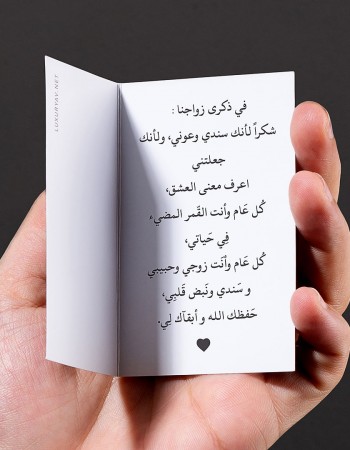 في ذكرى زواجنا :
شكراً لأنك سندي وعوني، ولأنك
جعلتني
اعرف معنى العشق،
كُل عَام وأنت القَمر المضيء
فِي حَياتي،
كُل عَام وأنَت زوجي وحبيبي
و سَندي ونَبض قَلبِي،
حَفظك الله و أبقآك لِي.